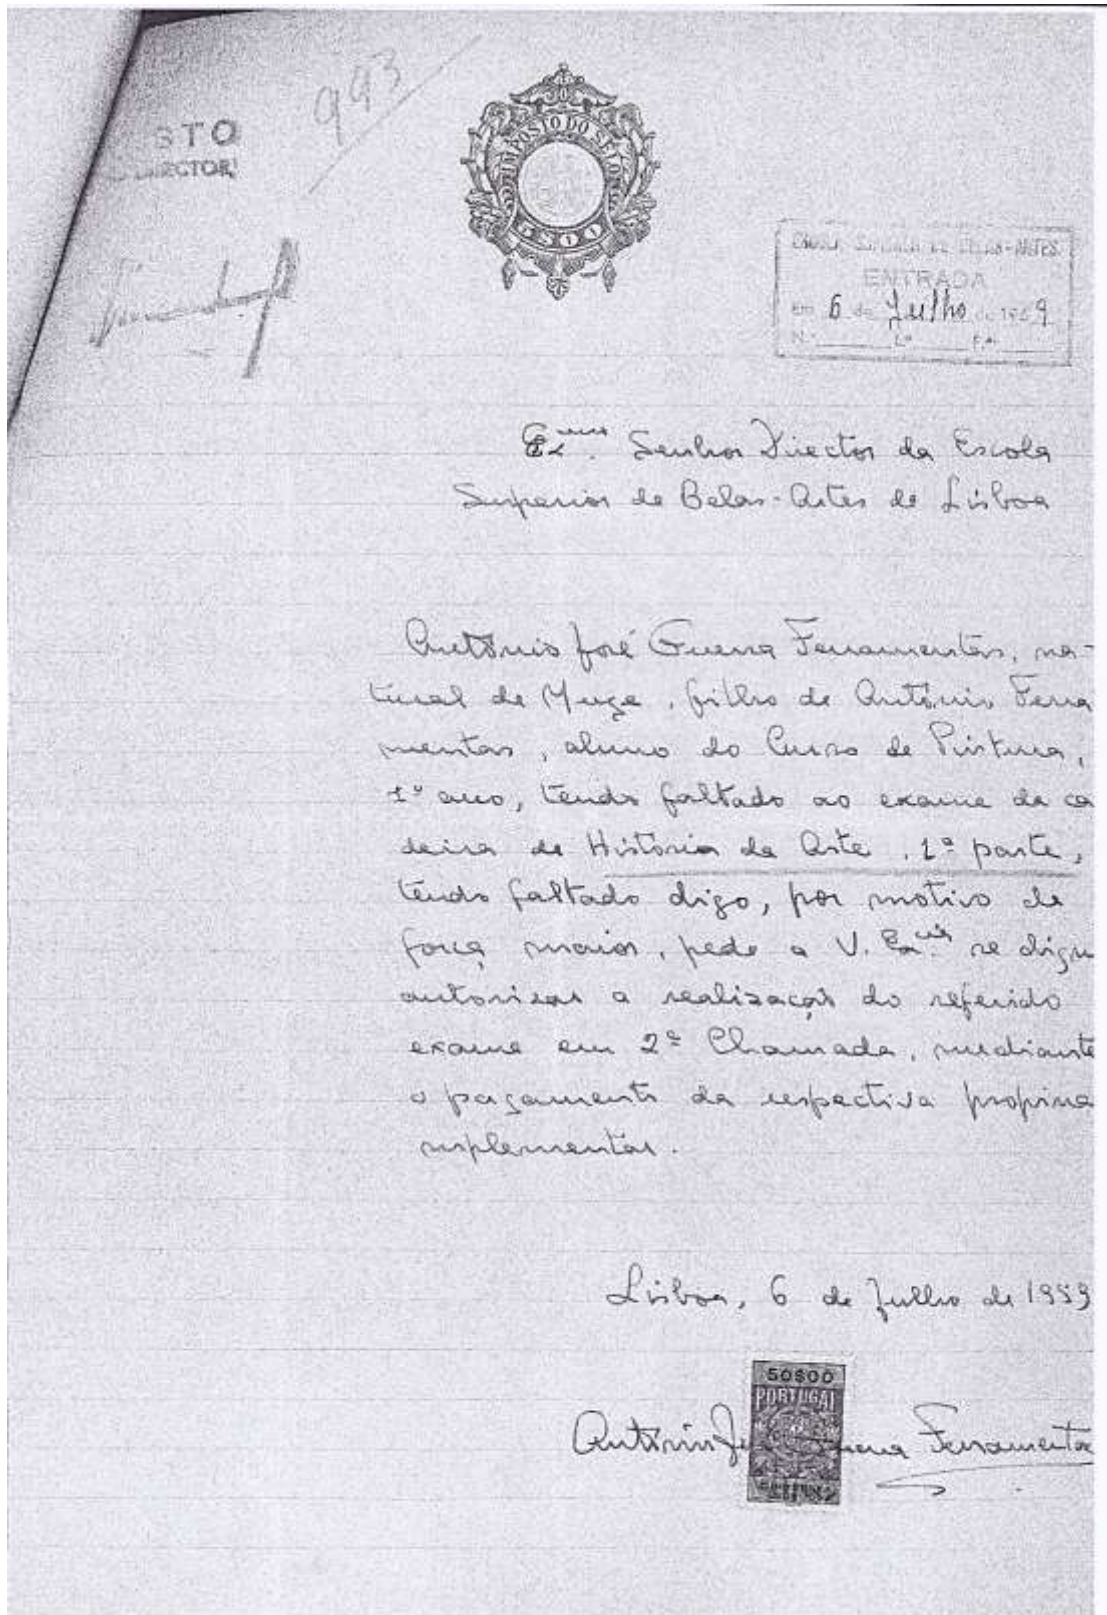 993
STO
RECTOR
IMPOSTO DO SELO
5$00
ESCOLA SUPERIOR DE BELAS-ARTES
ENTRADA
em 6 de Julho de 1959
N.º L.º F.º
Ex.mo Senhor Director da Escola
Superior de Belas-Artes de Lisboa
António José Guerra Ferramentas, na-
tural de Muge, filho de António Ferra
mentas, aluno do Curso de Pintura,
1º ano, tendo faltado ao exame da ca
deira de História da Arte, 1ª parte,
tendo faltado digo, por motivo de
força maior, pede a V. Ex.cia se digne
autorizar a realização do referido
exame em 2ª Chamada, mediante
o pagamento da respectiva propina
suplementar.
Lisboa, 6 de Julho de 1959
50$00
PORTUGAL
António José Guerra Ferramentas